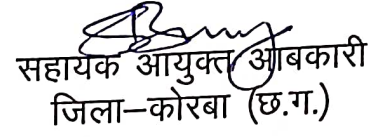 सहायक आयुक्त आबकारी
जिला–कोरबा (छ.ग.)